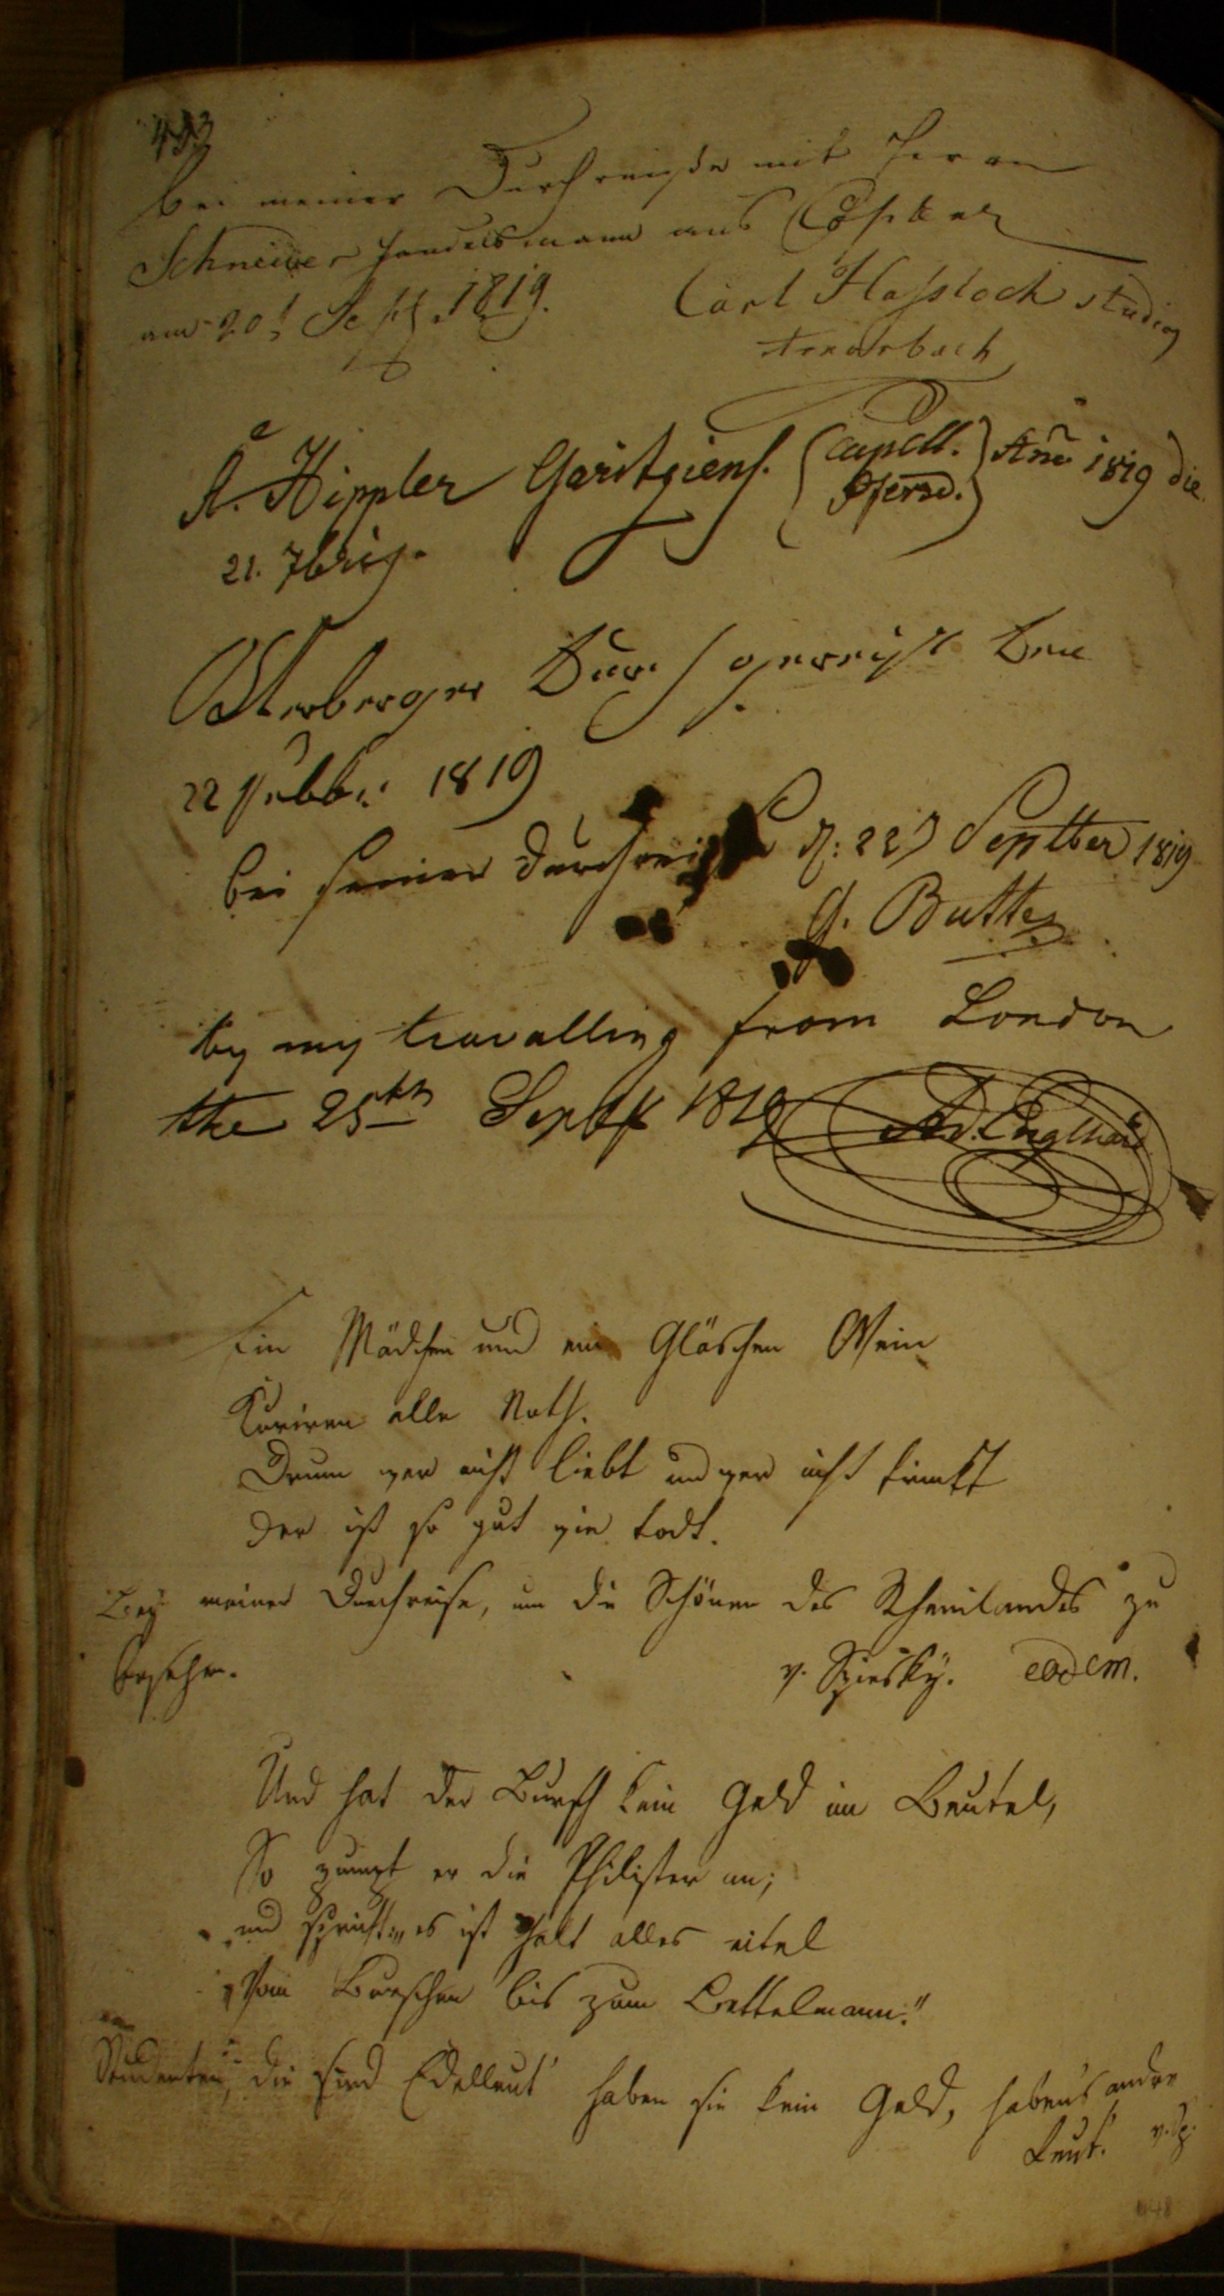 433
bei meiner Durchreiße mit Herrn
Schneider Handelsmann aus
am 20t Sept. 1819. Carl Hassloch
A. Hippler (Capell.) Ano 1819 die
21. 7bris.
Otterberger Durchgereist den
22 1819
bei seiner Durchreise d: 22 Septber 1819
G. Butte
by my travalling from London
the 25th Septbr 1819 Ad. Englhard
Ein Mädchen und ein Gläschen Wein
Kuriren alle Noth.
Drum wer nicht liebt und wer nicht trinkt
der ist so gut wie todt.
Bey meiner Durchreise, um die Schönen des Rheinlandes zu
besehen. v. Spiesky. eodem.
Und hat der Bursch kein Geld im Beutel,
So pumpt er die Philister an;
und spricht: „es ist halt alles eitel
„Vom Burschen bis zum Bettelmann."
Studenten, die sind Edelleut' haben sie kein Geld, haben's andre
Leut'. v. Sp.